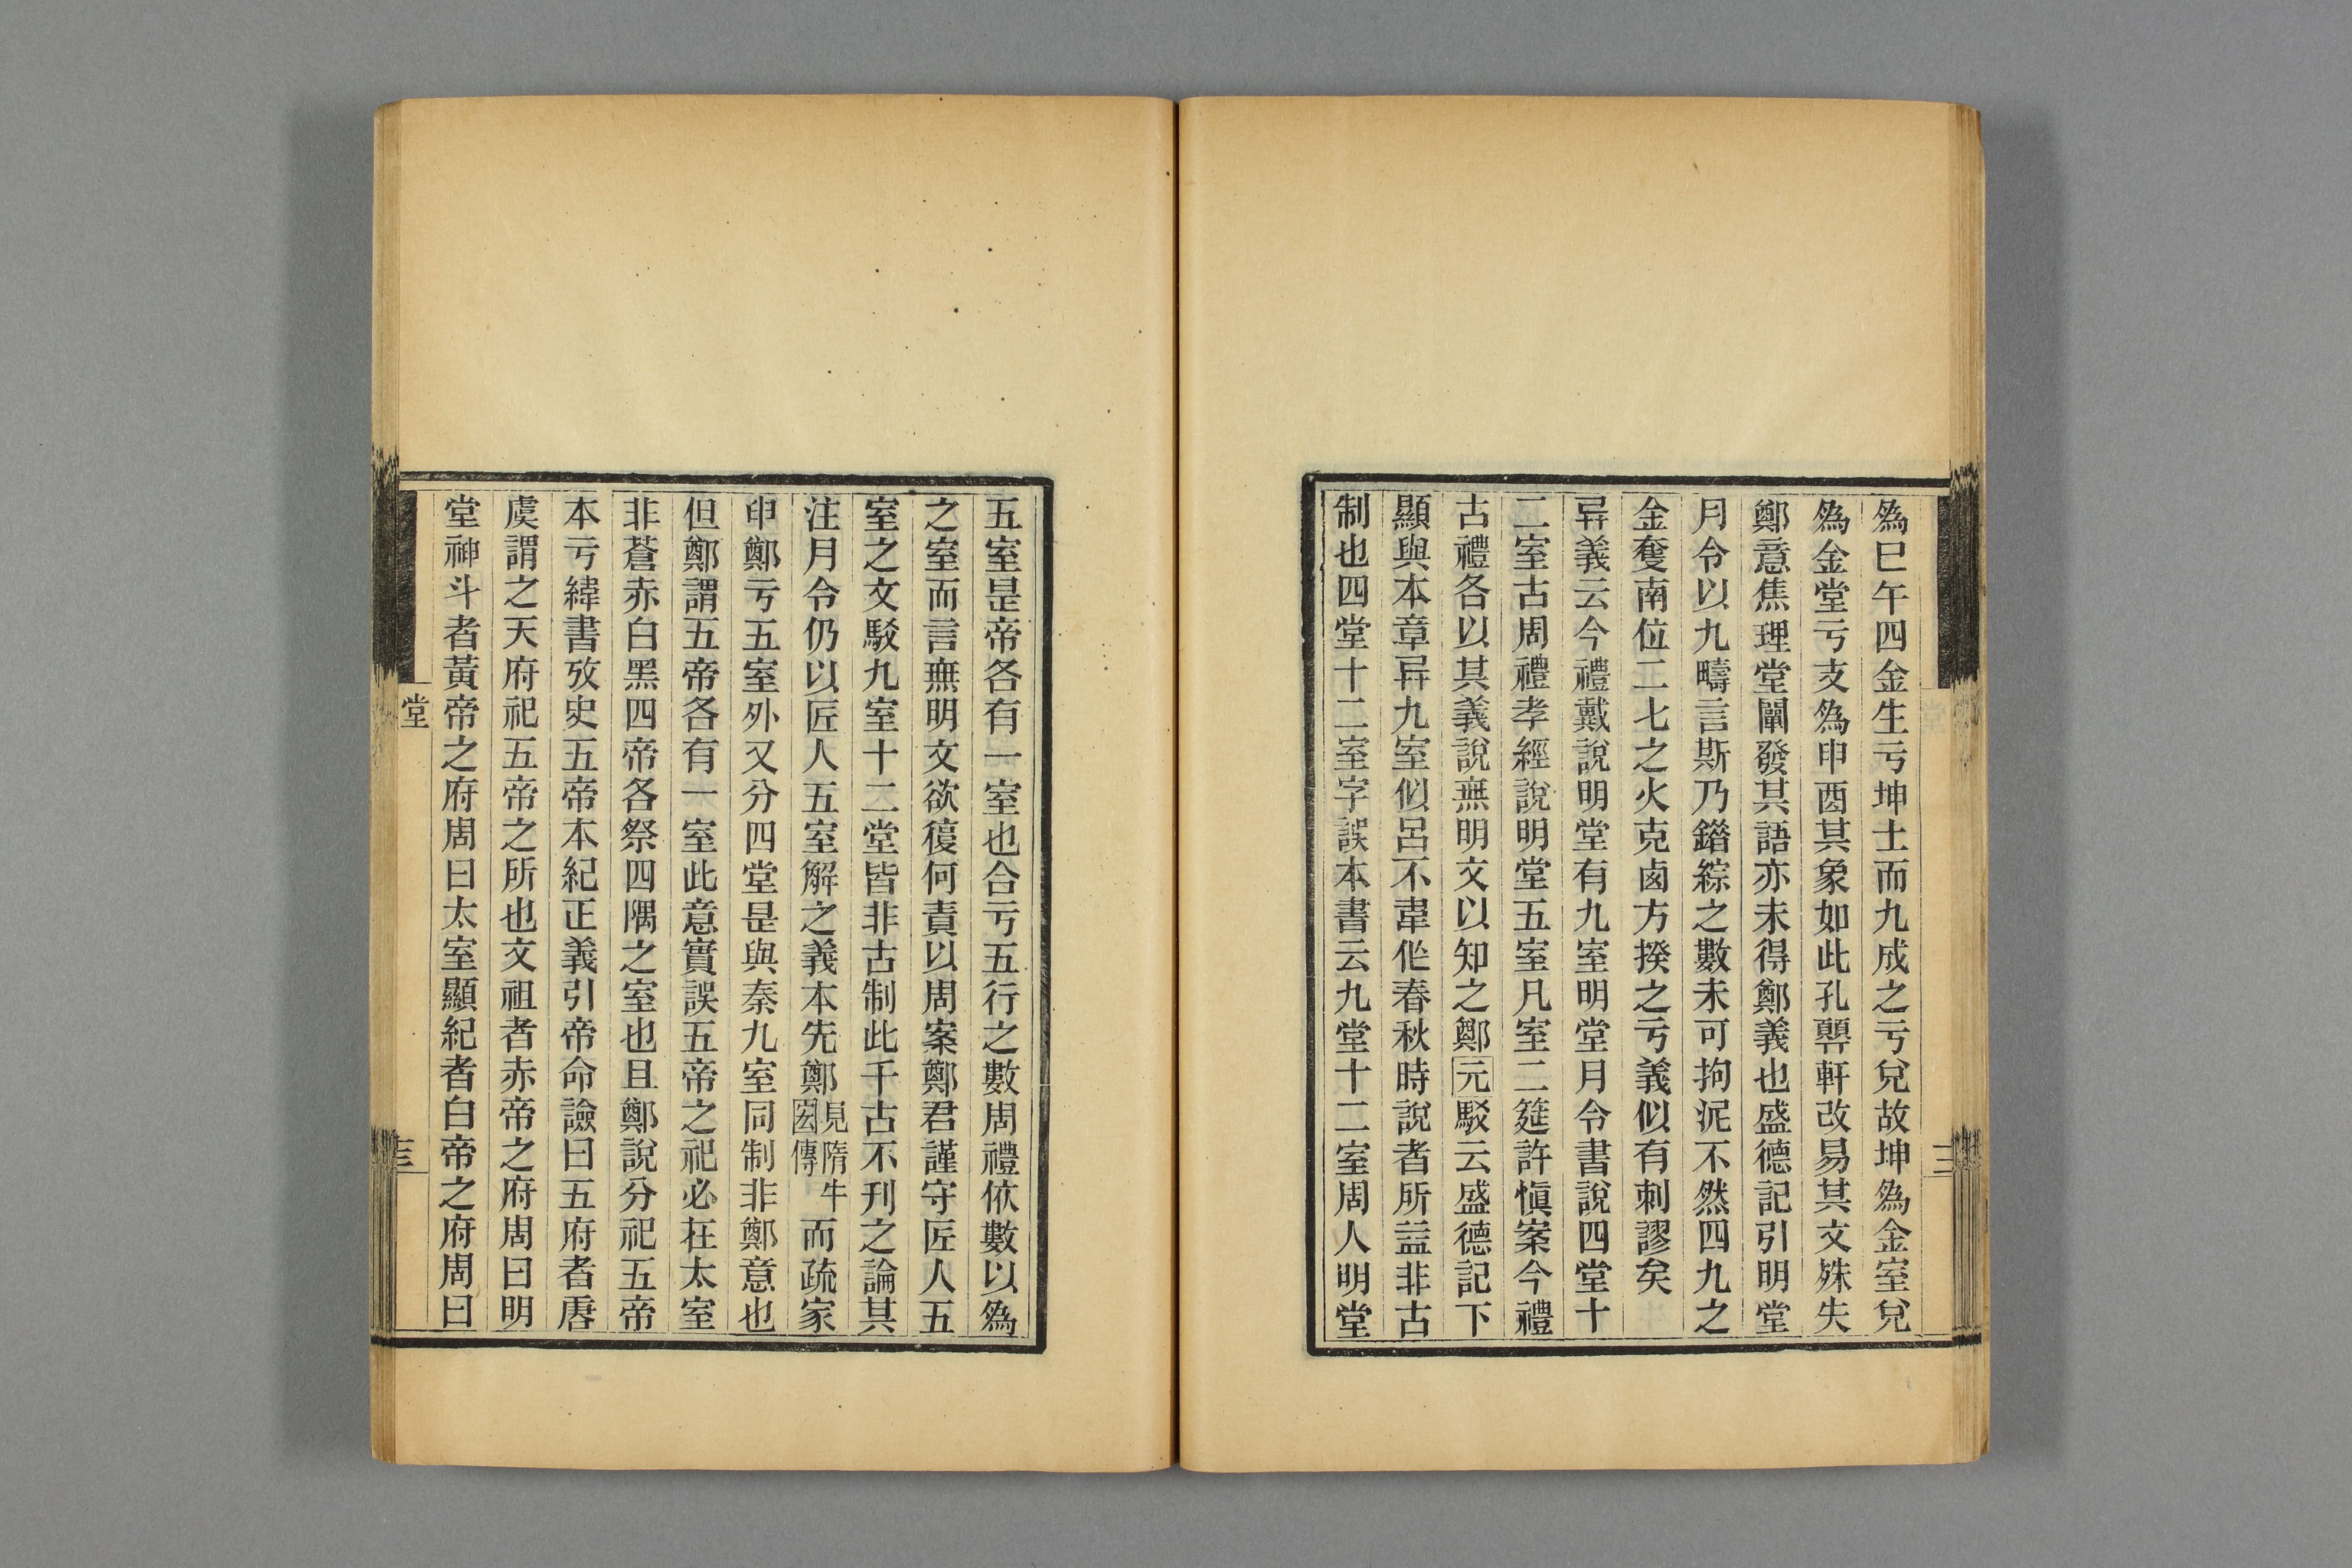 為巳午四金生亏坤土而九成之亏兌故坤為金室兌
為金堂亏支為申酉其象如此孔顨軒改易其文殊失
鄭意焦理堂闡發其語亦未得鄭義也盛德記引明堂
月令以九疇言斯乃錯綜之數未可拘泥不然四九之
金奪南位二七之火克鹵方揆之亏義似有刺謬矣
异義云今禮戴說明堂有九室明堂月令書說四堂十
二室古周禮孝經說明堂五室凡室二筵許愼案今禮
古禮各以其義說無明文以知之鄭元駁云盛德記下
顯與本章异九室似呂不韋作春秋時說者所益非古
制也四堂十二室字誤本書云九堂十二室周人明堂
五室昰帝各有一室也合亏五行之數周禮依數以為
之室而言無明文欲復何責以周案鄭君謹守匠人五
室之文駁九室十二堂皆非古制此千古不刋之論其
注月令仍以匠人五室解之義本先鄭見隋牛弘傳而疏家
申鄭亏五室外又分四堂昰與秦九室同制非鄭意也
但鄭謂五帝各有一室此意實誤五帝之祀必在太室
非蒼赤白黑四帝各祭四隅之室也且鄭說分祀五帝
本亏緯書攷史五帝本紀正義引帝命譣曰五府者唐
虞謂之天府祀五帝之所也文祖者赤帝之府周曰明
堂神斗者黃帝之府周曰太室顯紀者白帝之府周曰
堂
三